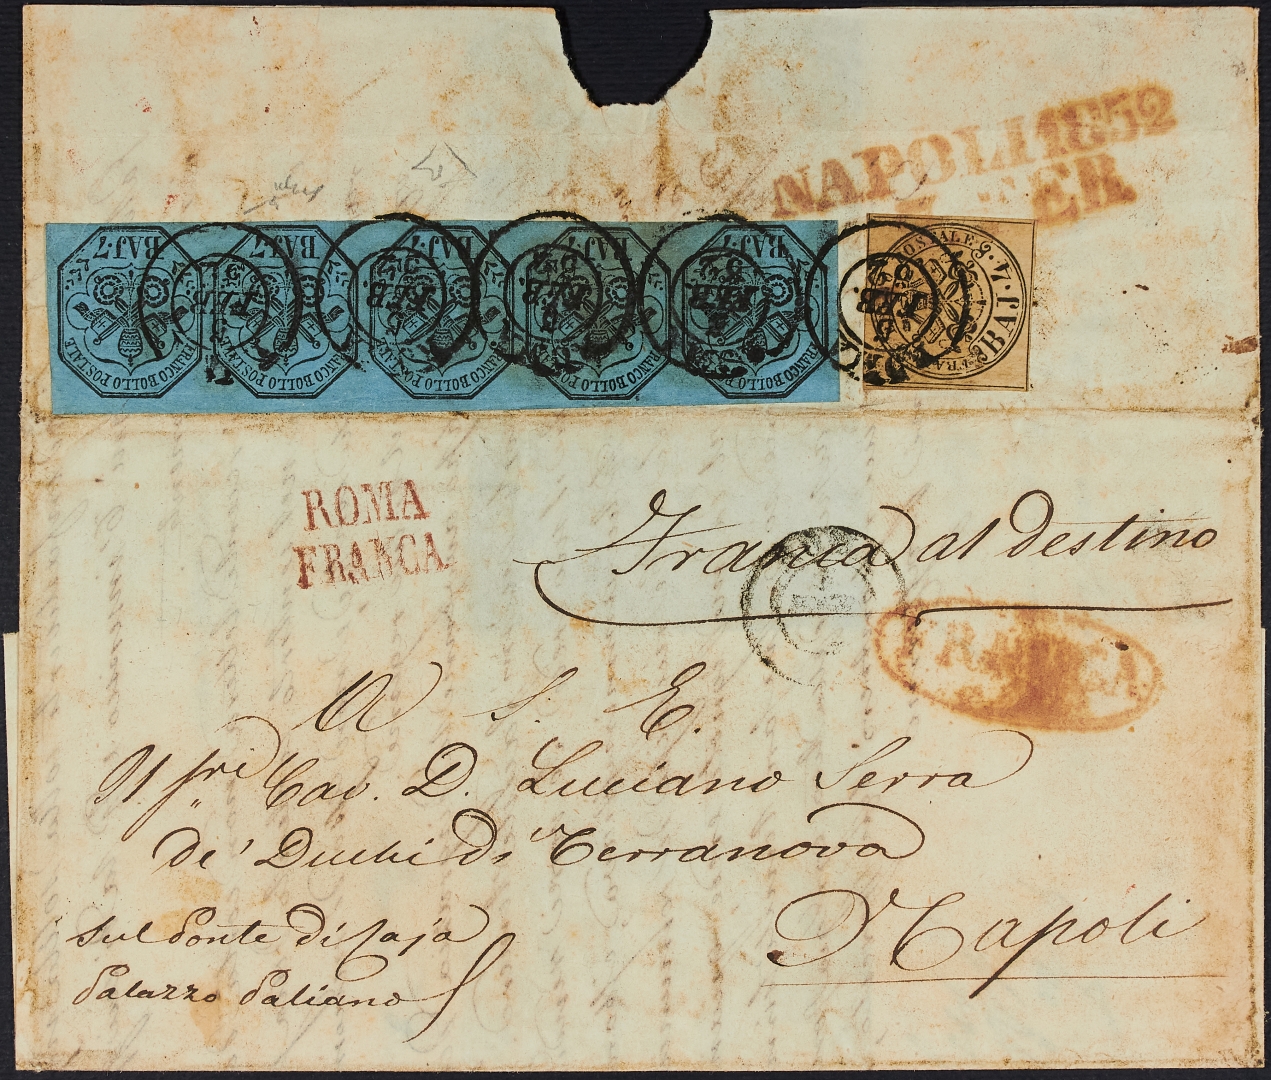 NAPOLI 1852
BAJ.7 BAJ.7 BAJ.7 BAJ.7 BAJ.7
FRANCO BOLLO POSTALE FRANCO BOLLO POSTALE FRANCO BOLLO POSTALE FRANCO BOLLO POSTALE FRANCO BOLLO POSTALE
BAJ
ROMA
FRANCA
Franca al destino
FRANCA
A S. E.
Cav. D. Luciano Serra
de' Duchi di Terranova
Napoli
Sul Ponte di Caja
Palazzo Paliano